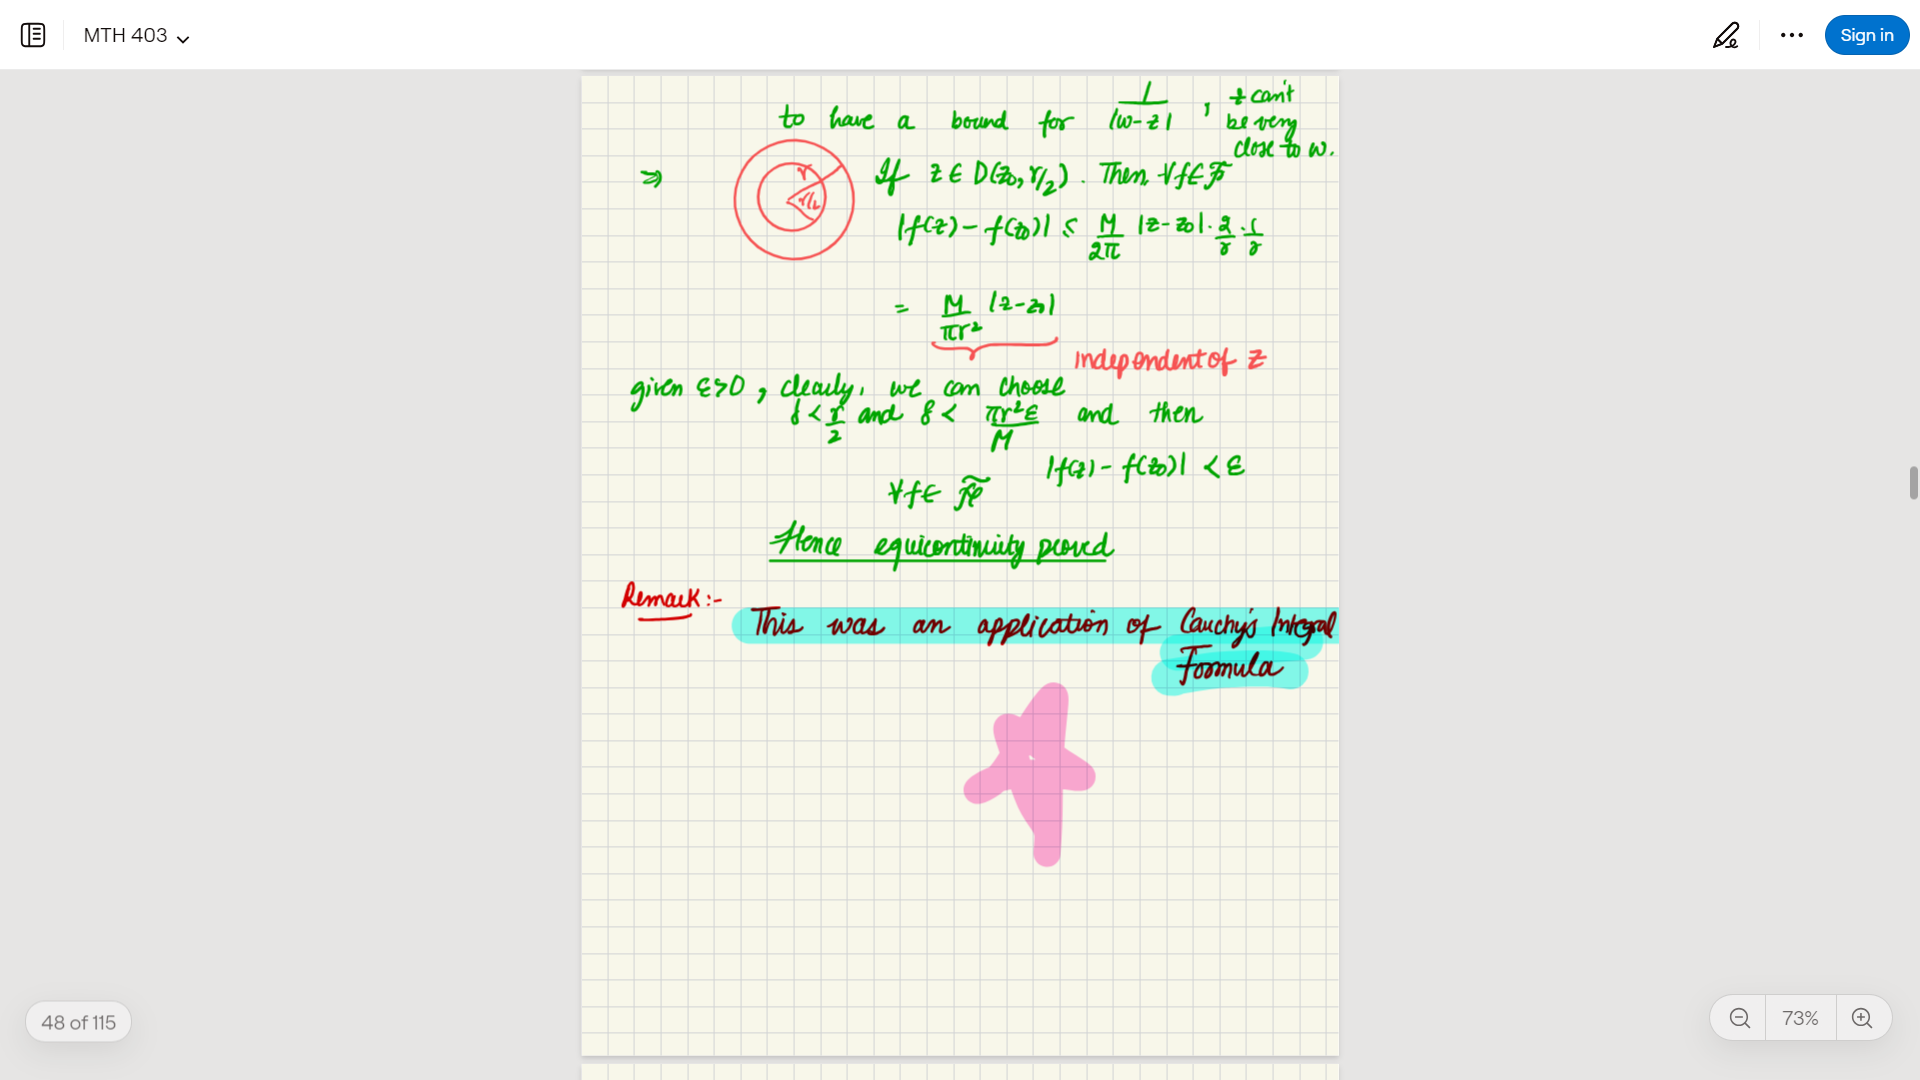 MTH 403
Sign in
to have a bound for 1/|w-z| , z can't
be very
close to w.
⇒ If z ∈ D(z0, r/2). Then, ∀f∈
r
r/2
|f(z) - f(z0)| ≤ M/2π |z-z0| · 2/r · 1/r
= M/πr² |z-z0|
independent of z
given ε>0, clearly, we can choose
δ < r/2 and δ < πr²ε/M and then
|f(z) - f(z0)| < ε
∀f∈
Hence equicontinuity proved
Remark:-
This was an application of Cauchy's Integral
Formula
48 of 115
73%